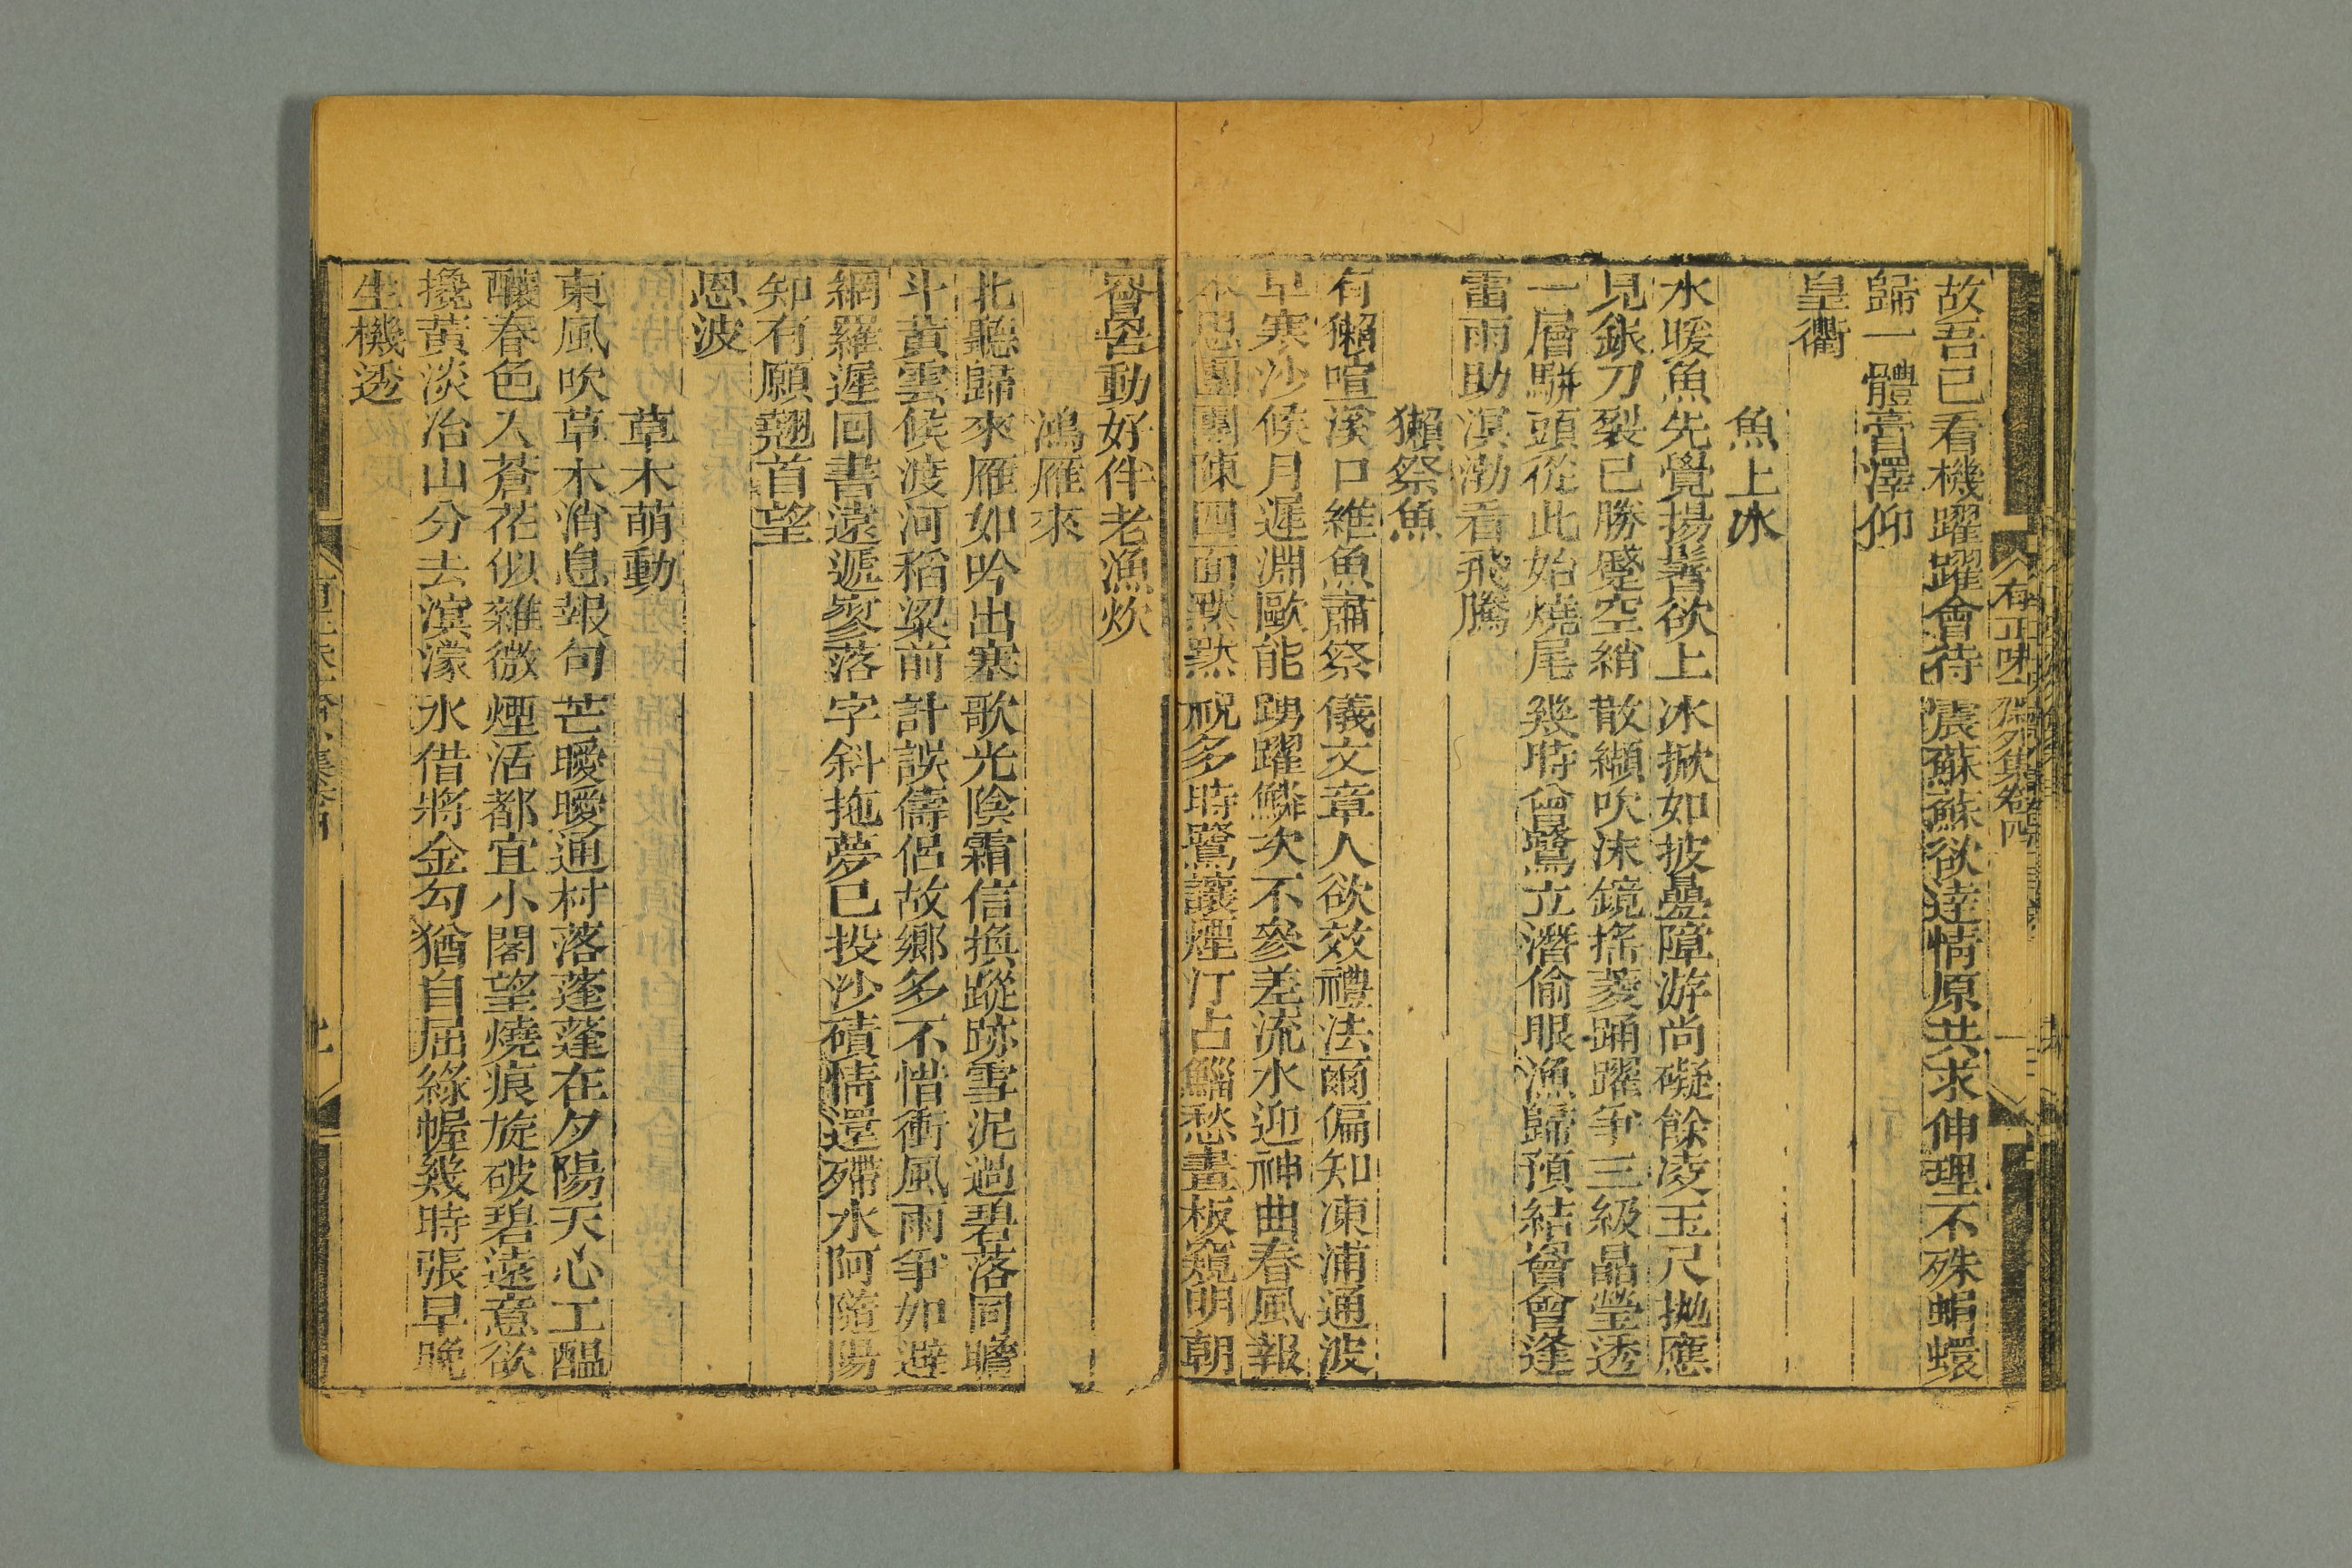 有正味齋外集卷四
故吾已看機躍躍會待震蘇蘇欲達情原共求伸理不殊蜎蠉
歸一體膏澤仰
皇衢
魚上冰
水暖魚先覺揚鬐欲上冰掀如披疊障游尚礙餘凌玉尺拋應
見銀刀裂已勝蹙空綃散纈吹沫鏡搖菱踊躍爭三級晶瑩透
一層駢頭從此始燒尾幾時曾鷺立潛偷眼漁歸預結罾會逢
雷雨助溟渤看飛騰
獺祭魚
有獺喧溪口維魚肅祭儀文章人欲效禮法爾偏知凍浦通波
早寒沙候月遲淵歐能踴躍鱗次不參差流水迎神曲春風報
本思團團陳四面默默祝多時鷺讓煙汀占鯔愁畫板窺明朝
罾罟動好伴老漁炊
鴻雁來
北聽歸來雁如吟出塞歌光陰霜信換蹤跡雪泥過碧落同瞻
斗黃雲候渡河稻粱前計誤儔侶故鄉多不惜衝風雨爭如避
網羅遲回書遠遞寥落字斜拖夢已投沙磧情還殢水阿隨陽
知有願翹首望
恩波
草木萌動
東風吹草木消息報句芒曖曖通村落蓬蓬在夕陽天心工醞
釀春色入蒼花似雜微煙活都宜小閣望燒痕旋破碧遠意欲
撓黃淡冶山分去溟濛水借將金勾猶自屈綠幄幾時張早晚
生機透